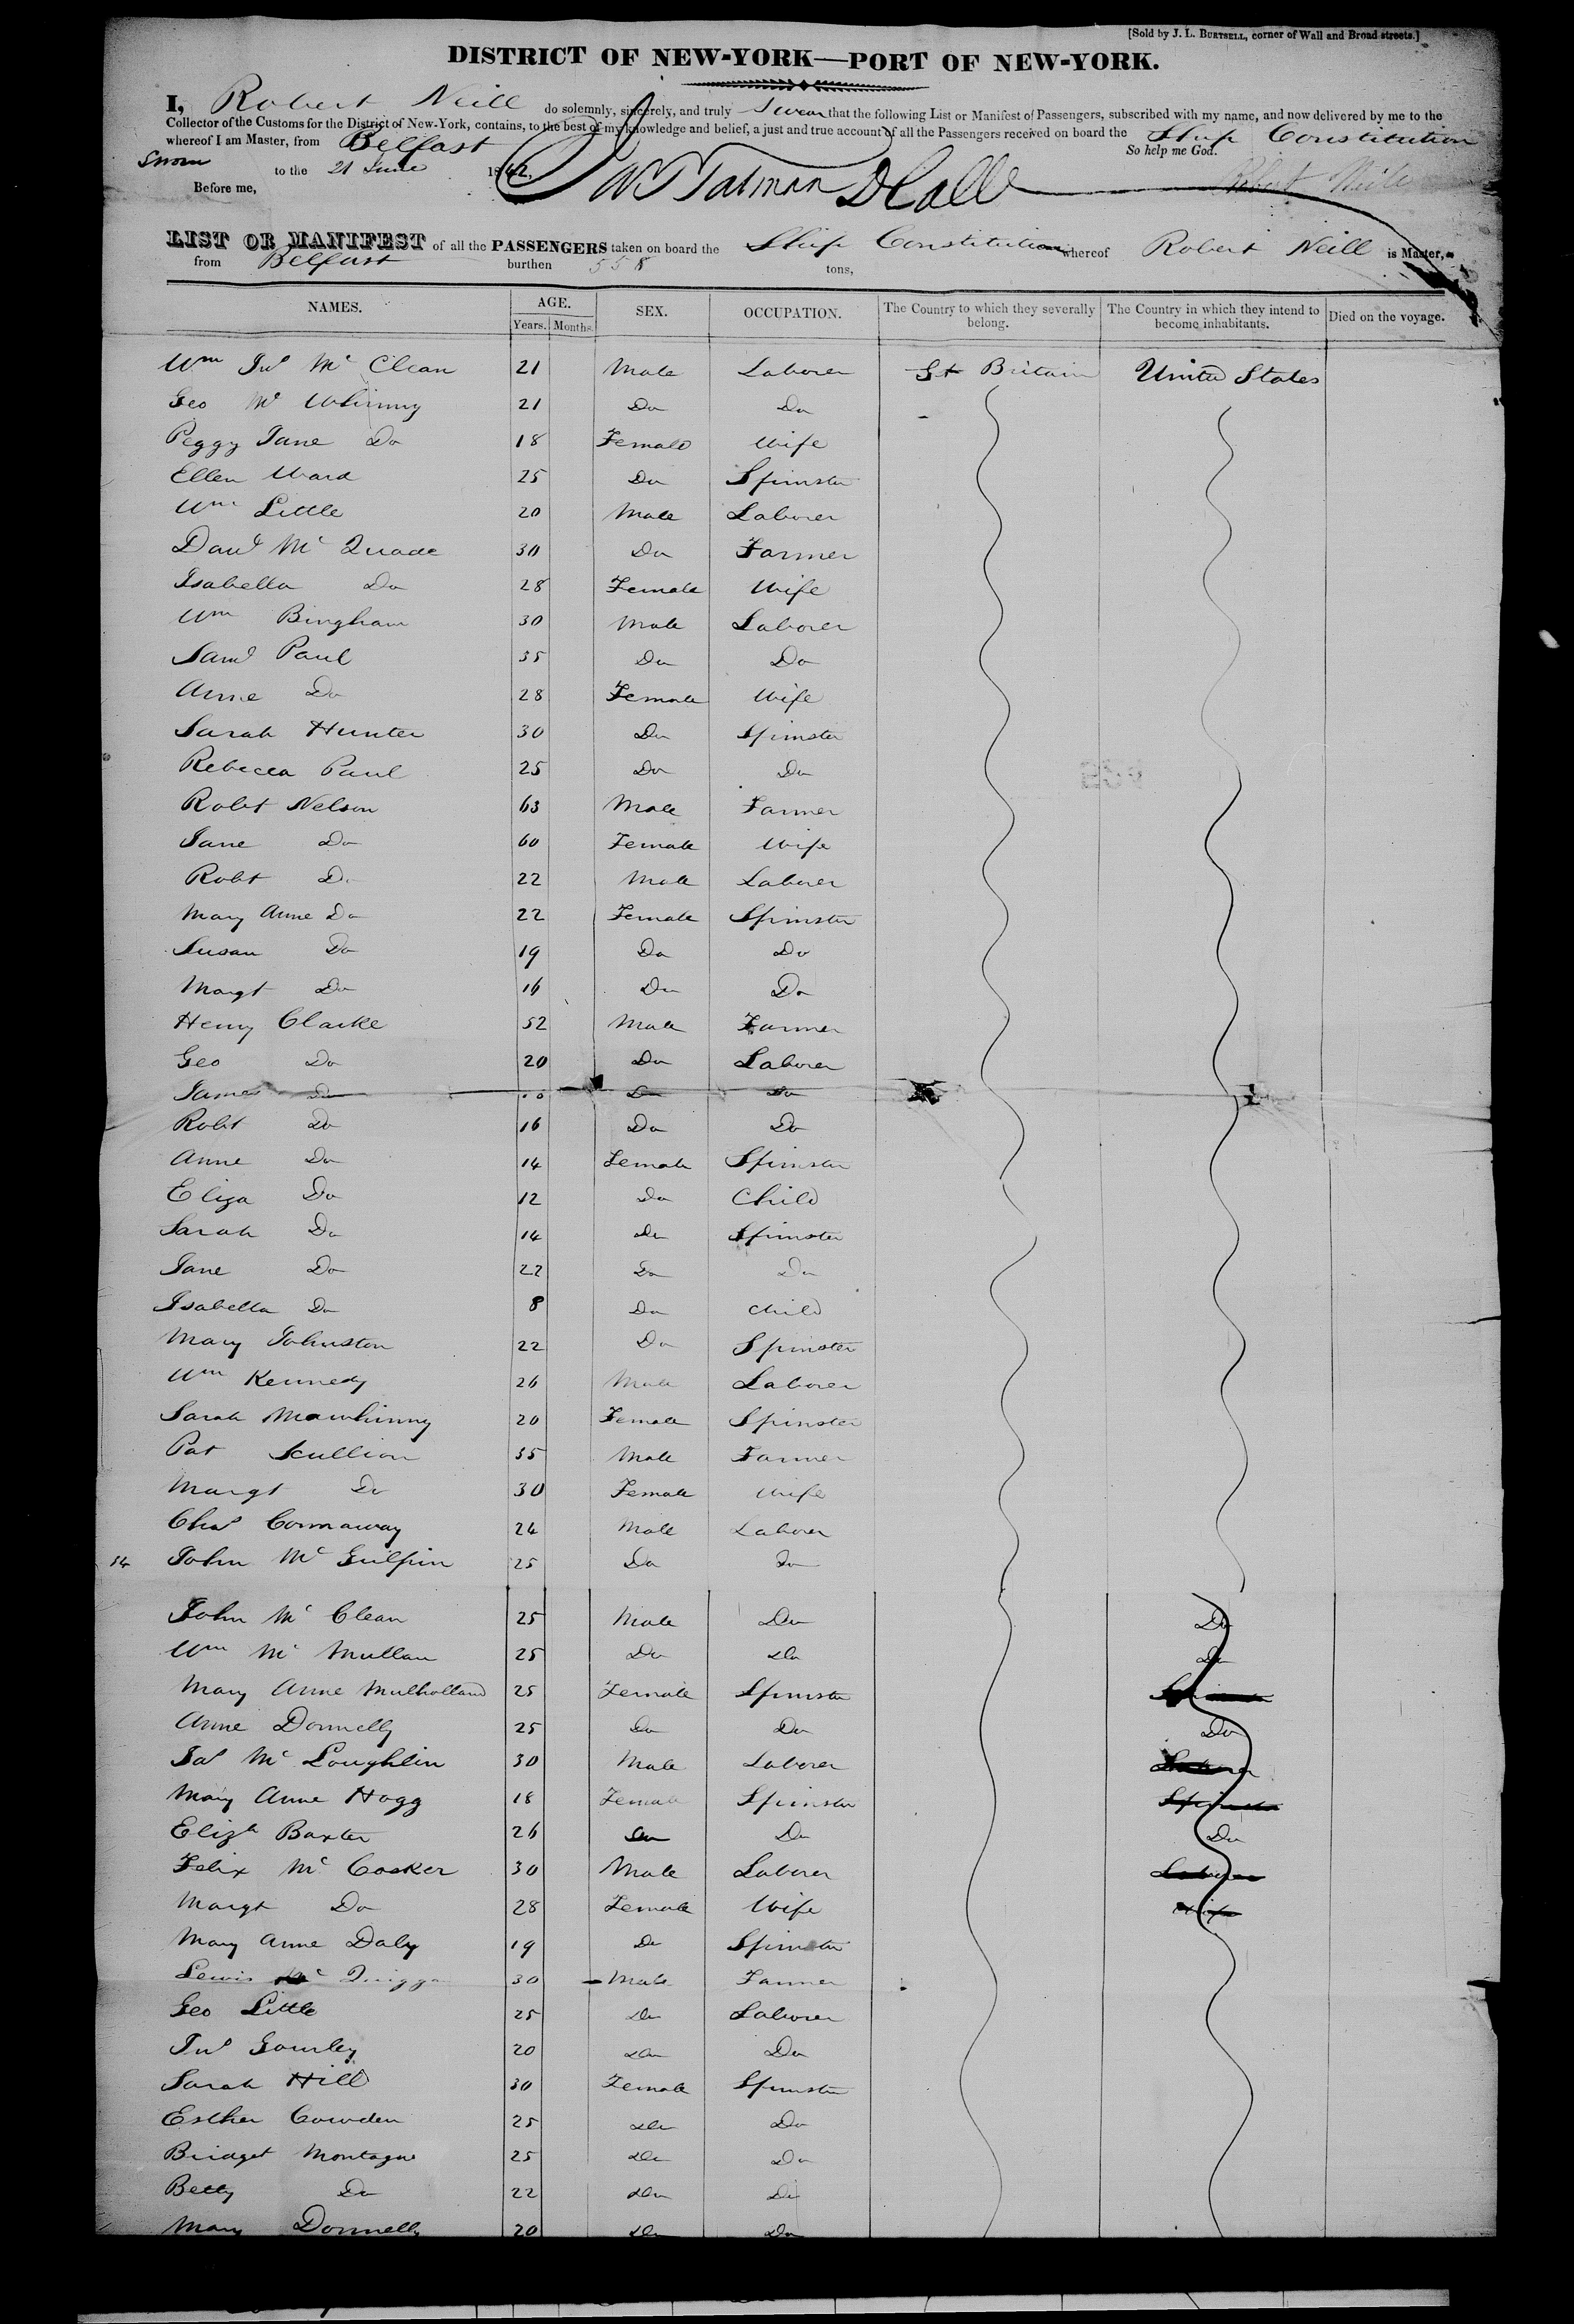 [Sold by J. L. BURTSELL, corner of Wall and Broad streets.]
DISTRICT OF NEW-YORK—PORT OF NEW-YORK.
I, Robert Neill do solemnly, sincerely, and truly Swear that the following List or Manifest of Passengers, subscribed with my name, and now delivered by me to the
Collector of the Customs for the District of New-York, contains, to the best of my knowledge and belief, a just and true account of all the Passengers received on board the Ship Constitution
whereof I am Master, from Belfast So help me God.
Sworn to the 21 June 1842. Robert Neill
Before me,
LIST OR MANIFEST of all the PASSENGERS taken on board the Ship Constitution whereof Robert Neill is Master,
from Belfast burthen 558 tons,
NAMES. AGE. SEX. OCCUPATION. The Country to which they severally belong. The Country in which they intend to become inhabitants. Died on the voyage.
Years. Months.
Wm Jno Mc Clean 21 Male Laborer Gt Britain United States
Geo Mc Whinny 21 Do Do
Peggy Jane Do 18 Female Wife
Ellen Ward 25 Do Spinster
Wm Little 20 Male Laborer
Danl Mc Quade 30 Do Farmer
Isabella Do 28 Female Wife
Wm Bingham 30 Male Laborer
Saml Paul 35 Do Do
Anne Do 28 Female Wife
Sarah Hunter 30 Do Spinster
Rebecca Paul 25 Do Do
Robt Nelson 63 Male Farmer
Jane Do 60 Female Wife
Robt Do 22 Male Laborer
Mary Anne Do 22 Female Spinster
Susan Do 19 Do Do
Margt Do 16 Do Do
Henry Clarke 52 Male Farmer
Geo Do 20 Do Laborer
James Do Do Do
Robt Do 16 Do Do
Anne Do 14 Female Spinster
Eliza Do 12 Do Child
Sarah Do 14 Do Spinster
Jane Do 22 Do Do
Isabella Do 8 Do Child
Mary Johnston 22 Do Spinster
Wm Kennedy 26 Male Laborer
Sarah Mawhinny 20 Female Spinster
Pat Scullion 35 Male Farmer
Margt Do 30 Female Wife
Chas Connaway 24 Male Laborer
34 John Mc Guilpin 25 Do Do
John Mc Clean 25 Male Do Do
Wm Mc Mullan 25 Do Do Do
Mary Anne Mulholland 25 Female Spinster Spinster
Anne Donnelly 25 Do Do Do
Jas Mc Loughlin 30 Male Laborer Laborer
Mary Anne Hogg 18 Female Spinster Spinster
Elizh Baxter 26 Do Do Do
Felix Mc Cosker 30 Male Laborer Laborer
Margt Do 28 Female Wife Wife
Mary Anne Daly 19 Do Spinster
Lewis Mc Quigg 30 Male Farmer
Geo Little 25 Do Laborer
Jno Gourley 20 Do Do
Sarah Hill 30 Female Spinster
Esther Cowden 25 Do Do
Bridget Montague 25 Do Do
Betty Do 22 Do Do
Mary Donnelly 20 Do Do